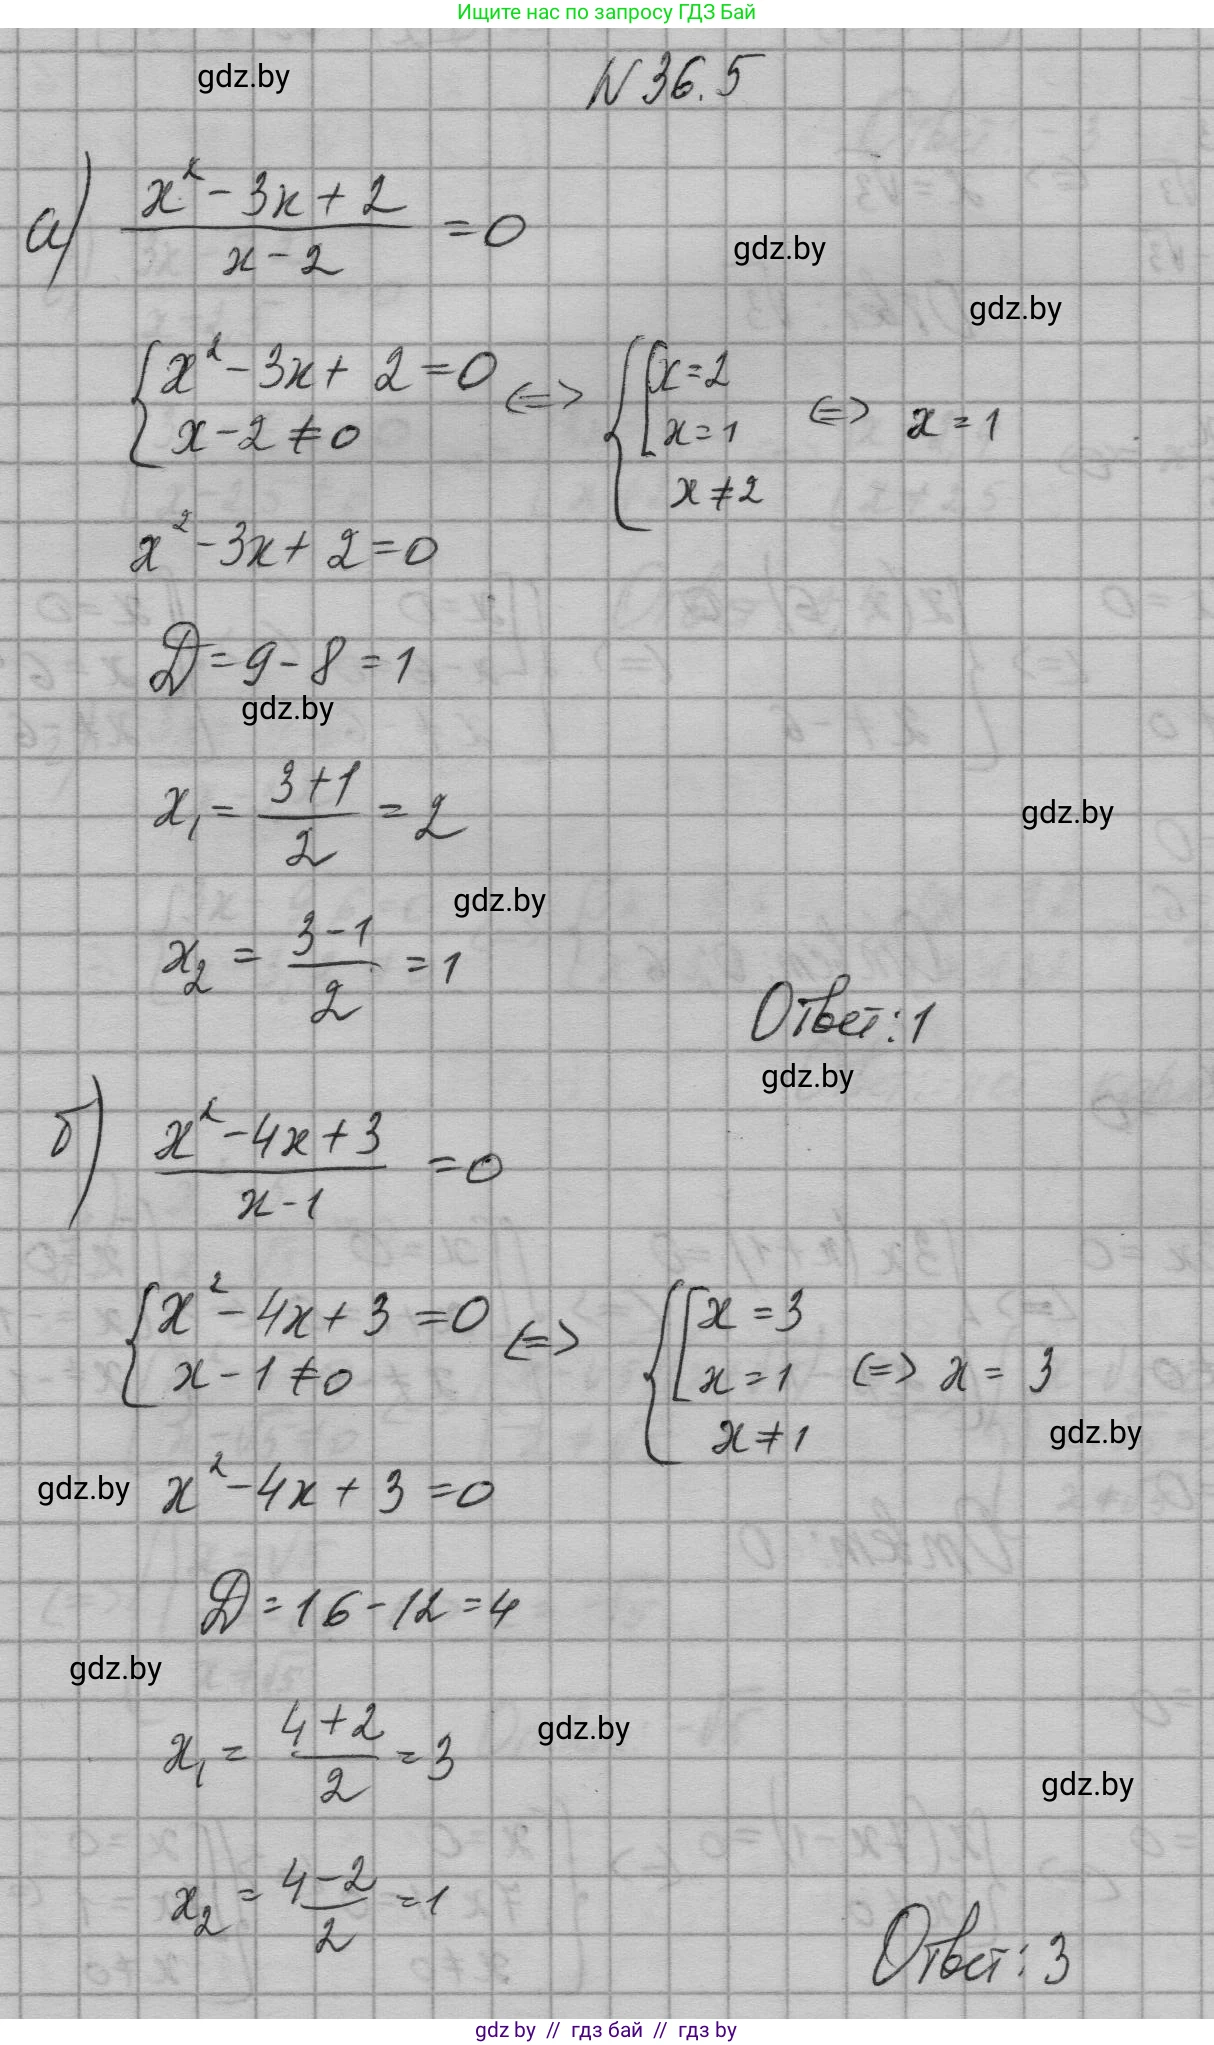 Ищите нас по запросу ГДЗ Бай
gdz.by
N 36.5
а) (x² - 3x + 2)/(x - 2) = 0
gdz.by
gdz.by
{ x² - 3x + 2 = 0 <=> { [ x = 2
x - 2 ≠ 0 x = 1 <=> x = 1
x ≠ 2
x² - 3x + 2 = 0
D = 9 - 8 = 1
gdz.by
x₁ = (3 + 1)/2 = 2
gdz.by
gdz.by
x₂ = (3 - 1)/2 = 1
Ответ: 1
gdz.by
б) (x² - 4x + 3)/(x - 1) = 0
{ x² - 4x + 3 = 0 <=> { [ x = 3
x - 1 ≠ 0 x = 1 <=> x = 3
x ≠ 1
gdz.by
gdz.by x² - 4x + 3 = 0
D = 16 - 12 = 4
gdz.by
x₁ = (4 + 2)/2 = 3
gdz.by
gdz.by
x₂ = (4 - 2)/2 = 1
Ответ: 3
gdz by // гдз бай // гдз by